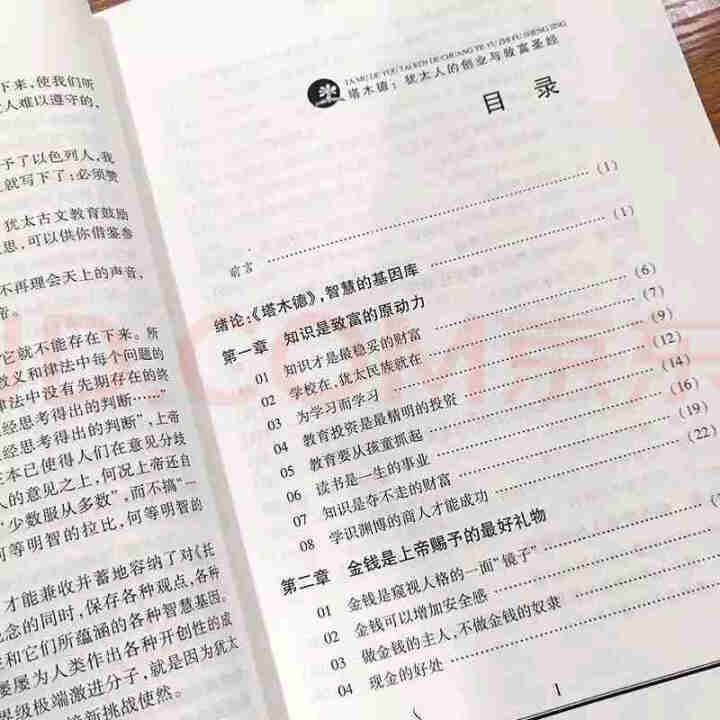 下来，使我们所
人难以遵守的，
予了以色列人，我
就写下了：必须赞
犹太古文教育鼓励
思，可以供你借鉴参
不再理会天上的声音，
帝。
它就不能存在下来。所
教义和律法中每个问题的
律法中没有先期存在的终
经思考得出的判断……”
经思考得出的判断”，上帝
本已使得人们在意见分歧
人的意见之上，何况上帝还自
“少数服从多数”，而不搞“一
何等明智的拉比，何等明智的
才能兼收并蓄地容纳了对《托
念的同时，保存各种观点，各种
和它们所蕴涵的各种智慧基因。
屡屡为人类作出各种开创性的成
界级极端激进分子，就是因为犹太
新挑战使然。
TA MU DE YOU TAI REN DE CHUANG YE YU ZHI FU SHENG JING
塔木德：犹太人的创业与致富圣经
目 录
前言……(1)
绪论：《塔木德》，智慧的基因库……(1)
第一章 知识是致富的原动力
01 知识才是最稳妥的财富……(6)
02 学校在，犹太民族就在……(7)
03 为学习而学习……(9)
04 教育投资是最精明的投资……(12)
05 教育要从孩童抓起……(14)
06 读书是一生的事业……(16)
07 知识是夺不走的财富……(19)
08 学识渊博的商人才能成功……(22)
第二章 金钱是上帝赐予的最好礼物
01 金钱是窥视人格的一面“镜子”……
02 金钱可以增加安全感……
03 做金钱的主人，不做金钱的奴隶……
04 现金的好处……
JD.COM 京东